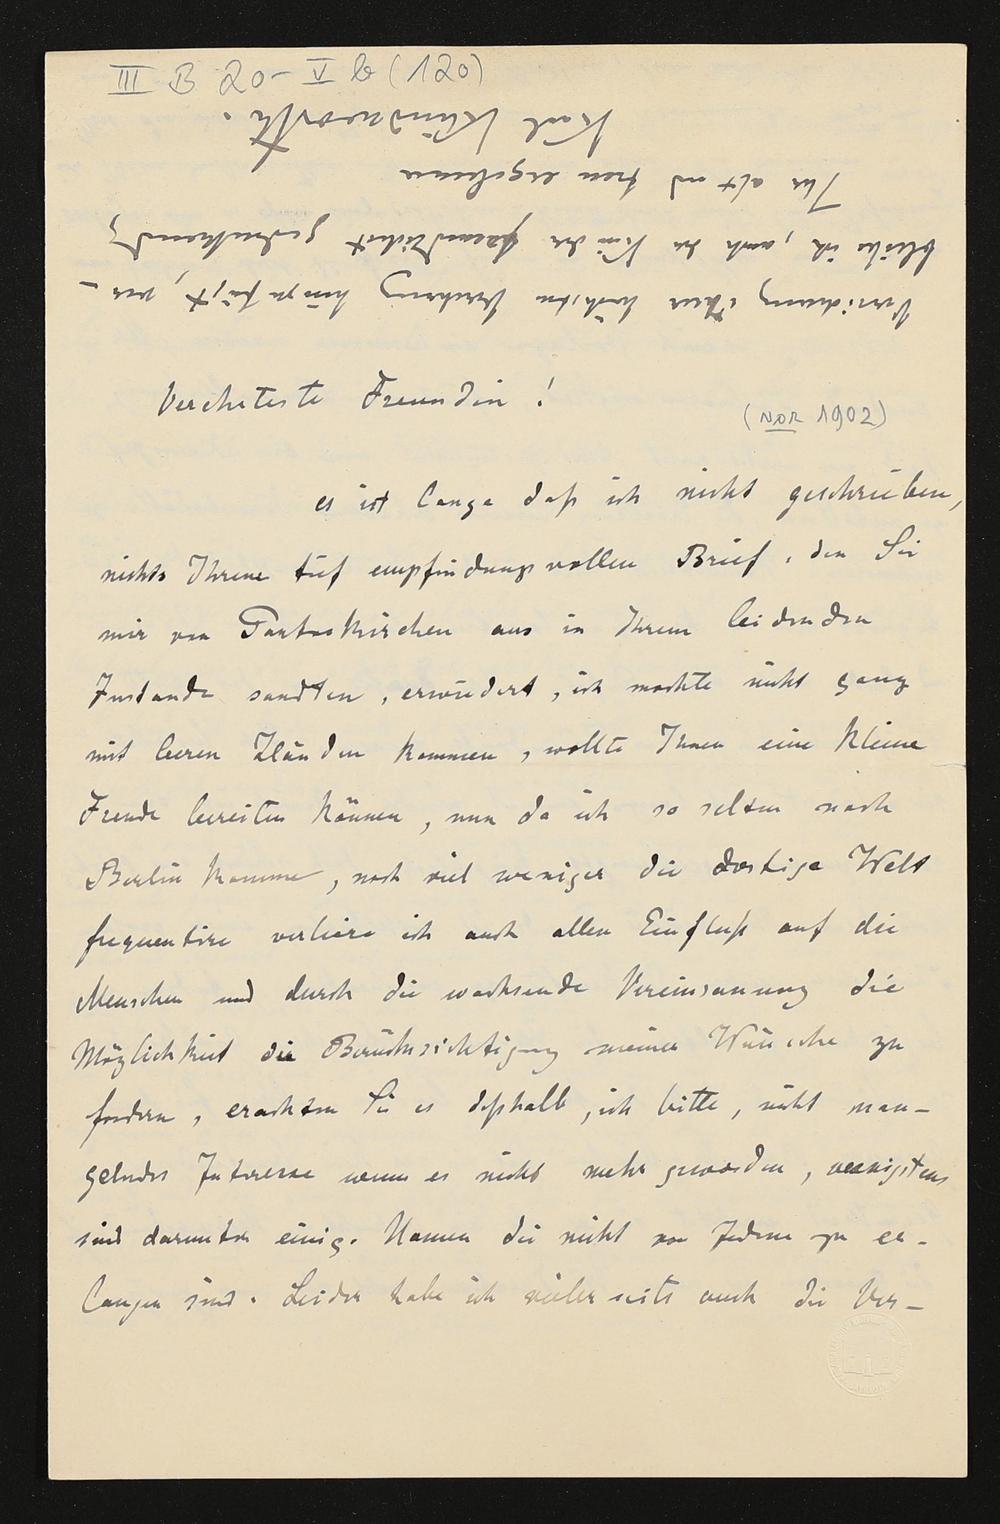 III B 20 - V b (120)
Verehrteste Freundin!
(vor 1902)
es ist lange daß ich nicht geschrieben,
nichts Ihrem tief empfindungsvollen Brief, den Sie
mir von Partenkirchen aus in Ihrem leidenden
Zustande sandten, erwiedert, ich mochte nicht ganz
mit leeren Händen kommen, wollte Ihnen eine kleine
Freude bereiten können, nun da ich so selten nach
Berlin komme, noch viel weniger die dortige Welt
frequentire verliere ich auch allen Einfluß auf die
Menschen und durch die wachsende Vereinsamung die
Möglichkeit die Berücksichtigung meiner Wünsche zu
fordern, erachten Sie es deßhalb, ich bitte, nicht man-
gelndes Interesse wenn es nicht mehr geworden, wenigstens
sind darunter einige Namen die nicht von Jedem zu er-
langen sind. Leider habe ich vielerseits auch die Ver-
Versicherung Ihrer höchsten Verehrung hinzu fügt, ver-
bleibe ich, auch der Kinder freundlichst gedenkend,
Ihr alt und treu ergebener
Karl Klindworth.